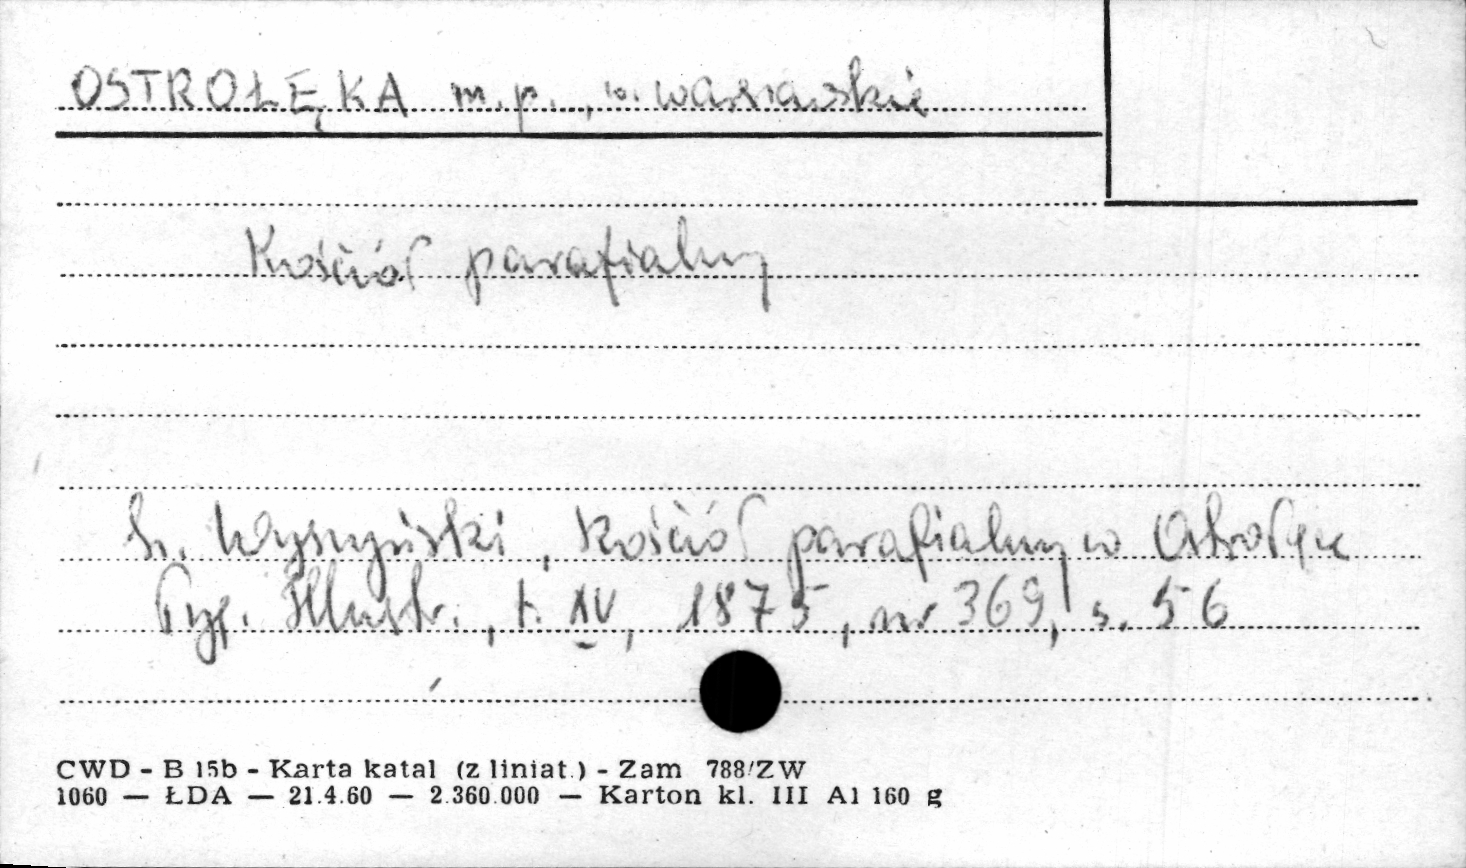 OSTROŁĘKA m.p., w. warszawskie
Kościół parafialny
S. Wyszyński, Kościół parafialny w Ostrołęce
Tyg. Illustr., t. XV, 1875, nr 369, s. 56
CWD - B 15b - Karta katal (z liniat.) - Zam 788/ZW
1060 — ŁDA — 21.4.60 — 2.360.000 — Karton kl. III A1 160 g